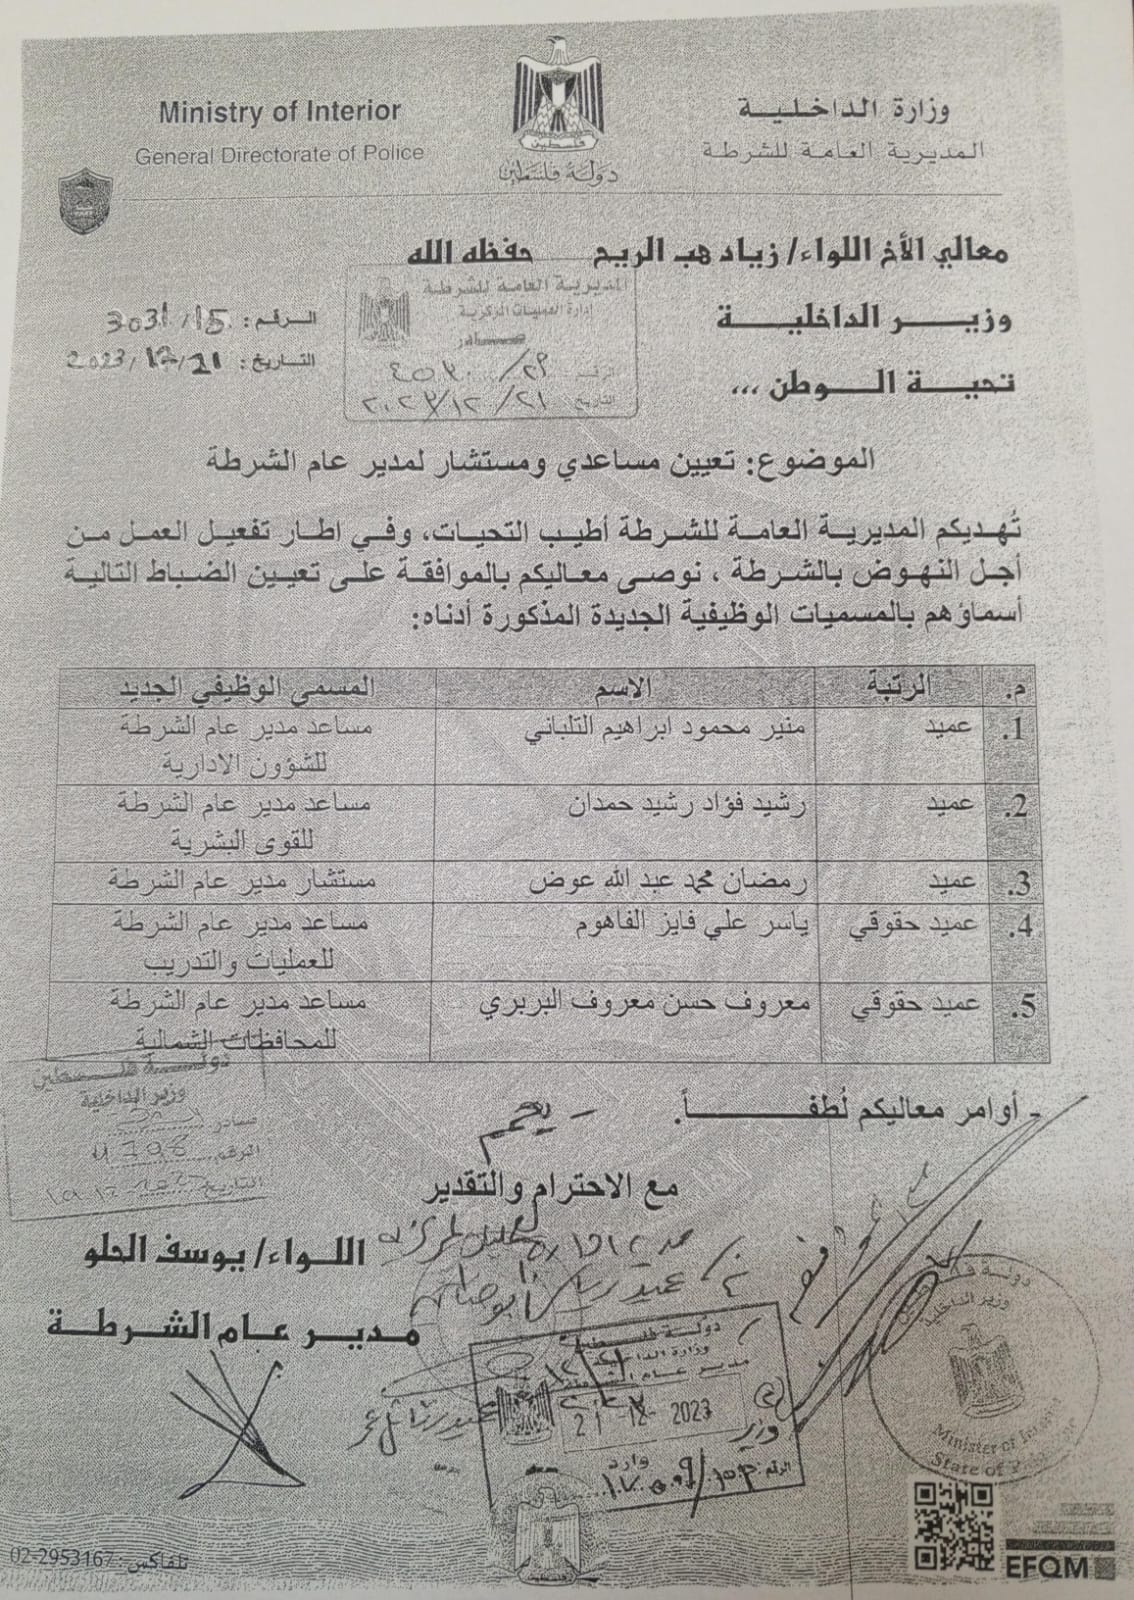 Ministry of Interior
General Directorate of Police
وزارة الداخلية
المديرية العامة للشرطة
فلسطين
دولة فلسطين
معالي الأخ اللواء/ زياد هب الريح حفظه الله
وزير الداخلية
تحية الوطن ...
الرقم: 3031/15
التاريخ: 2023/12/21
المديرية العامة للشرطة
إدارة العمليات المركزية
صادر
التاريخ ٢٠٢٣/١٢/٢١
الموضوع: تعيين مساعدي ومستشار لمدير عام الشرطة
تُهديكم المديرية العامة للشرطة أطيب التحيات، وفي اطار تفعيل العمل من
أجل النهوض بالشرطة ، نوصى معاليكم بالموافقة على تعيين الضباط التالية
أسماؤهم بالمسميات الوظيفية الجديدة المذكورة أدناه:
م. الرتبة الاسم المسمى الوظيفي الجديد
1. عميد منير محمود ابراهيم التلباني مساعد مدير عام الشرطة
للشؤون الادارية
2. عميد رشيد فؤاد رشيد حمدان مساعد مدير عام الشرطة
للقوى البشرية
3. عميد رمضان محمد عبد الله عوض مستشار مدير عام الشرطة
4. عميد حقوقي ياسر علي فايز الفاهوم مساعد مدير عام الشرطة
للعمليات والتدريب
5. عميد حقوقي معروف حسن معروف البربري مساعد مدير عام الشرطة
للمحافظات الشمالية
دولة فلسطين
وزير الداخلية
صادر
الرقم
التاريخ
- أوامر معاليكم لُطفـــاً.
مع الاحترام والتقدير
اللواء/ يوسف الحلو
مدير عام الشرطة
دولة فلسطين
وزارة الداخلية
مدير عام الشرطة
21 -12- 2023
وارد
الرقم:
دولة فلسطين
وزير الداخلية
Minister of Interior
State of
EFQM
تلفاكس: 02-2953167